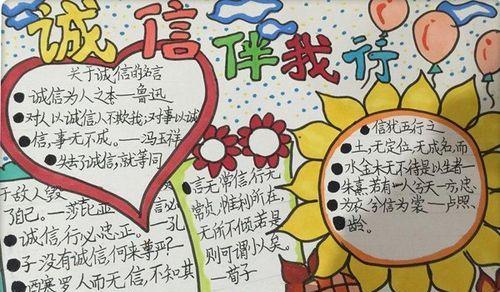 诚信伴我行
关于诚信的名言
诚信为人之本—鲁迅
对人以诚信人不欺我;对事以诚
信,事无不成。—冯玉祥
失去了诚信,就等同
于敌人毁
了自己。—莎
诚信,行必忠正。—孔
子没有诚信,何来尊严?
西塞罗人而无信,不知其
言无常信,行无
常贞,惟利所在,
无所不倾,若是
则可谓小人矣。
—荀子
信犹五行之
土,无定位,无成名,而
水金木无不待是以生者—
朱熹.若有一分天一方,忠
为衣兮信为裳—卢照
龄。